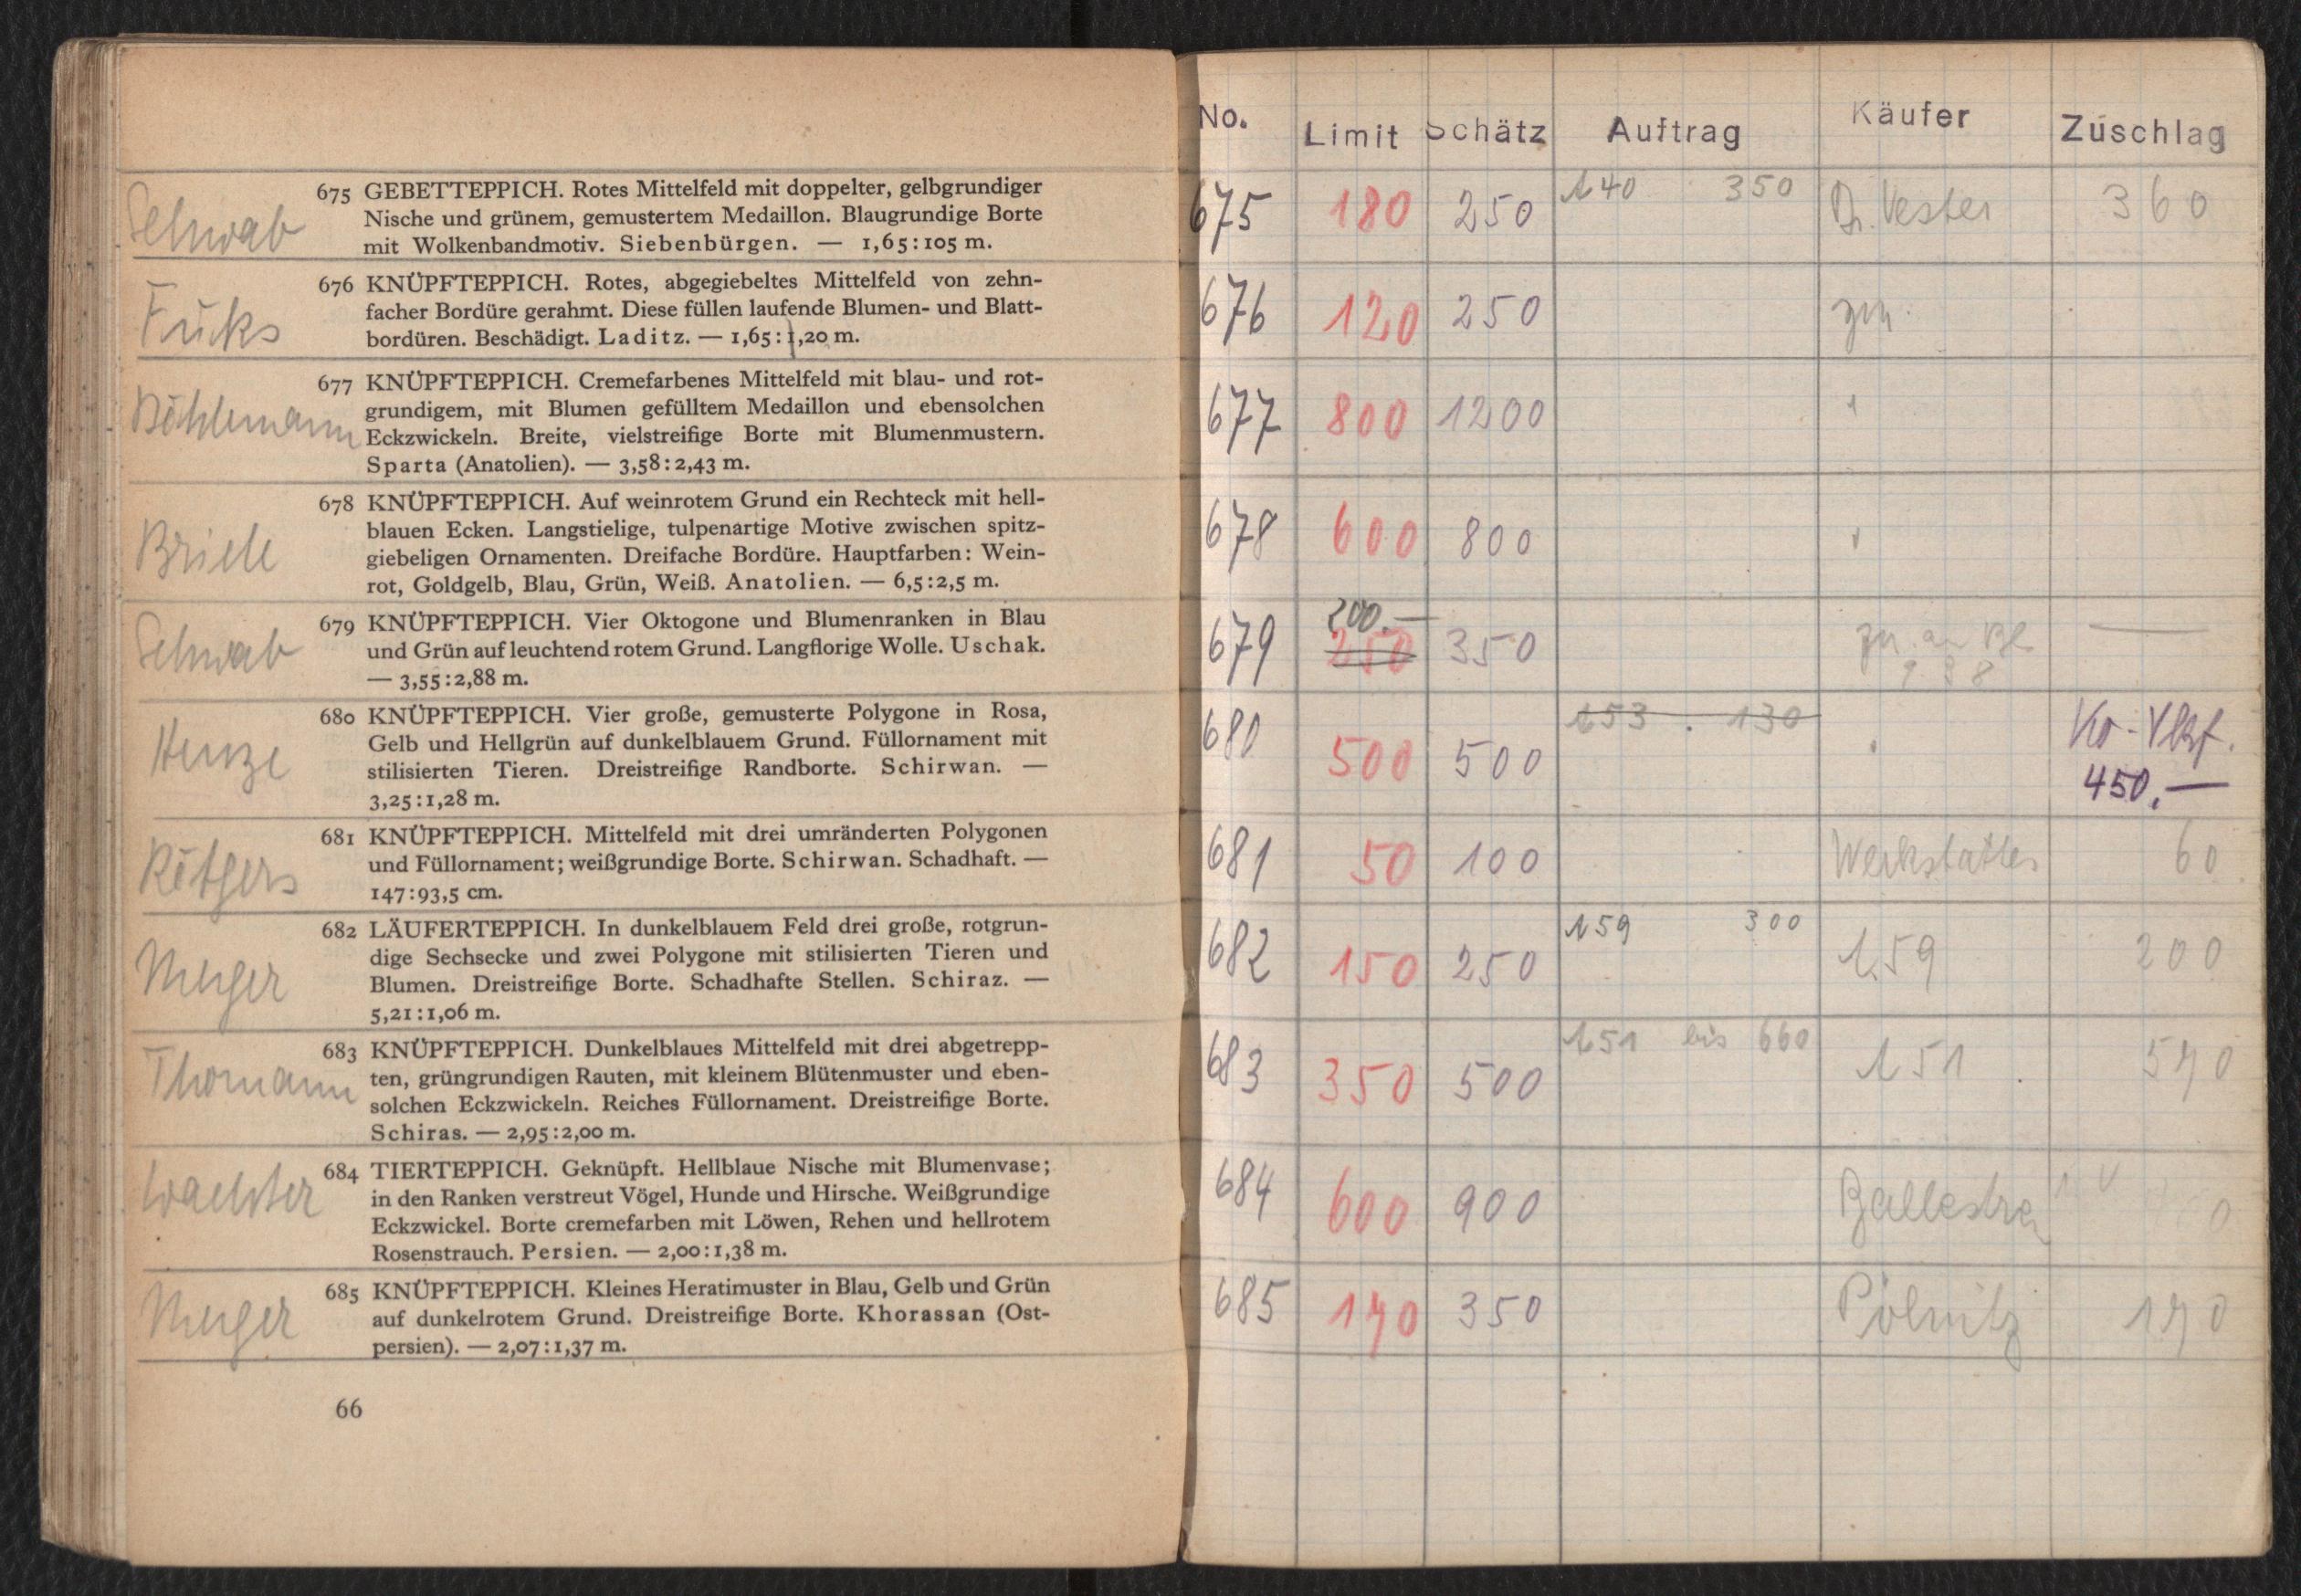 Schwab
675 GEBETTEPPICH. Rotes Mittelfeld mit doppelter, gelbgrundiger
Nische und grünem, gemustertem Medaillon. Blaugrundige Borte
mit Wolkenbandmotiv. Siebenbürgen. — 1,65:105 m.
Fuks
676 KNÜPFTEPPICH. Rotes, abgegiebeltes Mittelfeld von zehn-
facher Bordüre gerahmt. Diese füllen laufende Blumen- und Blatt-
bordüren. Beschädigt. Laditz. — 1,65:1,20 m.
677 KNÜPFTEPPICH. Cremefarbenes Mittelfeld mit blau- und rot-
grundigem, mit Blumen gefülltem Medaillon und ebensolchen
Eckzwickeln. Breite, vielstreifige Borte mit Blumenmustern.
Sparta (Anatolien). — 3,58:2,43 m.
678 KNÜPFTEPPICH. Auf weinrotem Grund ein Rechteck mit hell-
blauen Ecken. Langstielige, tulpenartige Motive zwischen spitz-
giebeligen Ornamenten. Dreifache Bordüre. Hauptfarben: Wein-
rot, Goldgelb, Blau, Grün, Weiß. Anatolien. — 6,5:2,5 m.
Schwab
679 KNÜPFTEPPICH. Vier Oktogone und Blumenranken in Blau
und Grün auf leuchtend rotem Grund. Langflorige Wolle. Uschak.
— 3,55:2,88 m.
Henze
680 KNÜPFTEPPICH. Vier große, gemusterte Polygone in Rosa,
Gelb und Hellgrün auf dunkelblauem Grund. Füllornament mit
stilisierten Tieren. Dreistreifige Randborte. Schirwan. —
3,25:1,28 m.
Rötgers
681 KNÜPFTEPPICH. Mittelfeld mit drei umränderten Polygonen
und Füllornament; weißgrundige Borte. Schirwan. Schadhaft. —
147:93,5 cm.
682 LÄUFERTEPPICH. In dunkelblauem Feld drei große, rotgrun-
dige Sechsecke und zwei Polygone mit stilisierten Tieren und
Blumen. Dreistreifige Borte. Schadhafte Stellen. Schiraz. —
5,21:1,06 m.
Thomann
683 KNÜPFTEPPICH. Dunkelblaues Mittelfeld mit drei abgetrepp-
ten, grüngrundigen Rauten, mit kleinem Blütenmuster und eben-
solchen Eckzwickeln. Reiches Füllornament. Dreistreifige Borte.
Schiras. — 2,95:2,00 m.
684 TIERTEPPICH. Geknüpft. Hellblaue Nische mit Blumenvase;
in den Ranken verstreut Vögel, Hunde und Hirsche. Weißgrundige
Eckzwickel. Borte cremefarben mit Löwen, Rehen und hellrotem
Rosenstrauch. Persien. — 2,00:1,38 m.
685 KNÜPFTEPPICH. Kleines Heratimuster in Blau, Gelb und Grün
auf dunkelrotem Grund. Dreistreifige Borte. Khorassan (Ost-
persien). — 2,07:1,37 m.
66
No. Limit Schätz Auftrag Käufer Zuschlag
675 180 250 140 350 Dr. Vester 360
676 120 250
677 800 1200
678 600 800
200.—
679 250 350 —
680 500 500 153 130
450.—
681 50 100 60
682 150 250 159 300 159 200
683 350 500 151 bis 660 151 540
684 600 900 Ballestra
685 140 350 Pölnitz 140